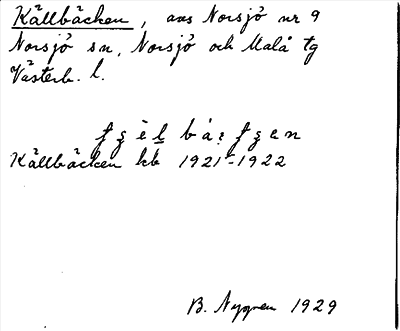 Källbäcken, avs Norsjö nr 9
Norsjö sn, Norsjö och Malå tg
Västerb. l.
Källbäcken kb 1921-1922
B. Nygren 1929